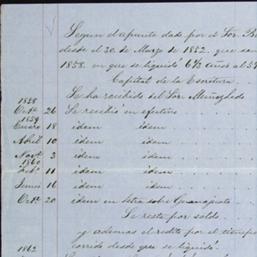 Segun el apunte dado por el Sor. B
desde el 20 de Marzo de 1852, que
1858. en que se liquidó 6½ años al 5
Capital de la Escritura
Se ha recibido del Sor. Muñozledo
1858
Oct.e 26 Se recibió en efectivo
1859
Enero 18 idem idem
Abril 10 idem idem
Nov.e 3 idem idem
1860
Feb.o 11 idem idem
Junio 16 idem idem
Oct.e 20 idem en letra sobre Guanajuato
Se resta por saldo
y ademas el redito por el tiempo
corrido desde que se liquidó
1862